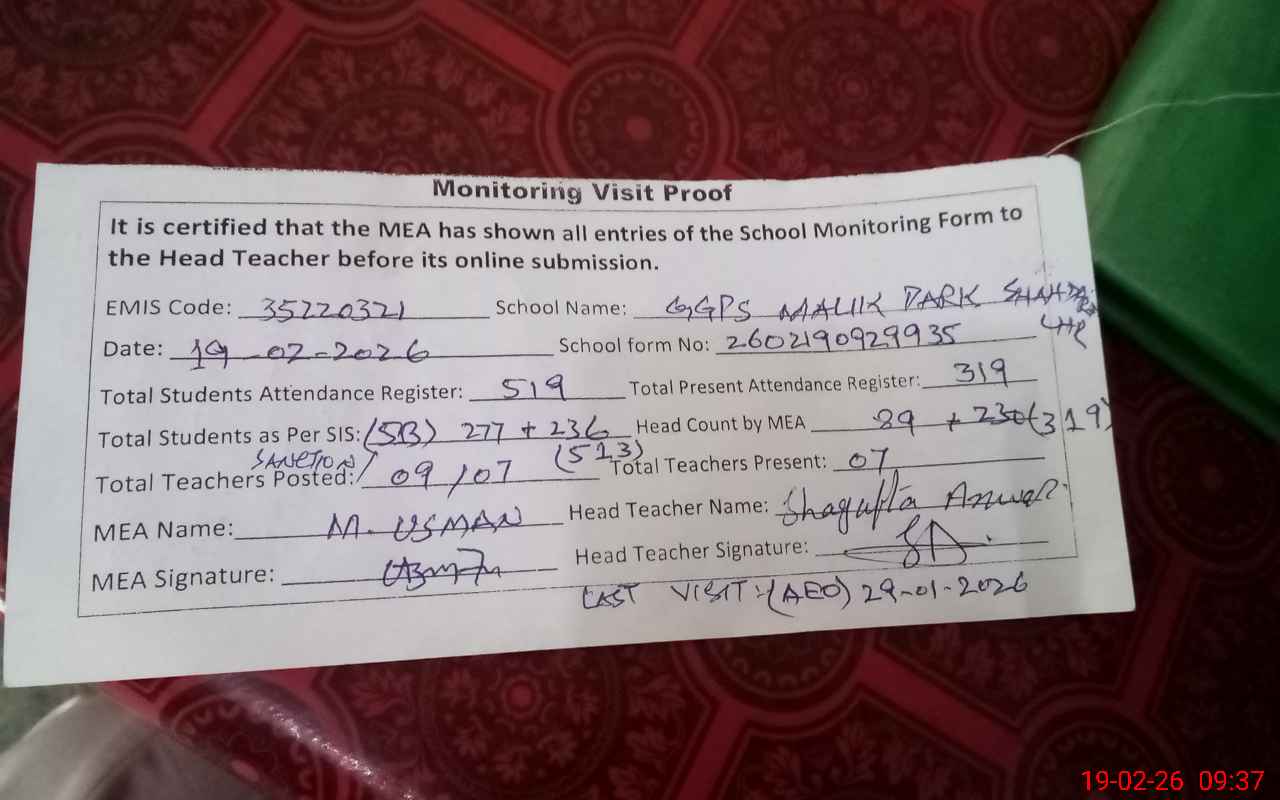 Monitoring Visit Proof
It is certified that the MEA has shown all entries of the School Monitoring Form to
the Head Teacher before its online submission.
EMIS Code: 35220321 School Name: GGPS MALIK PARK SHAHDRA
LHR
Date: 19-02-2026 School form No: 2602190929935
Total Students Attendance Register: 519 Total Present Attendance Register: 319
Total Students as Per SIS: (513) 277 + 236 Head Count by MEA 89 + 230 (319)
(513)
SANCTION /
Total Teachers Posted: 09/07 Total Teachers Present: 07
MEA Name: M. USMAN Head Teacher Name: Shagufta Anwar
MEA Signature: Head Teacher Signature: SA
LAST VISIT:(AEO) 29-01-2026
19-02-26 09:37